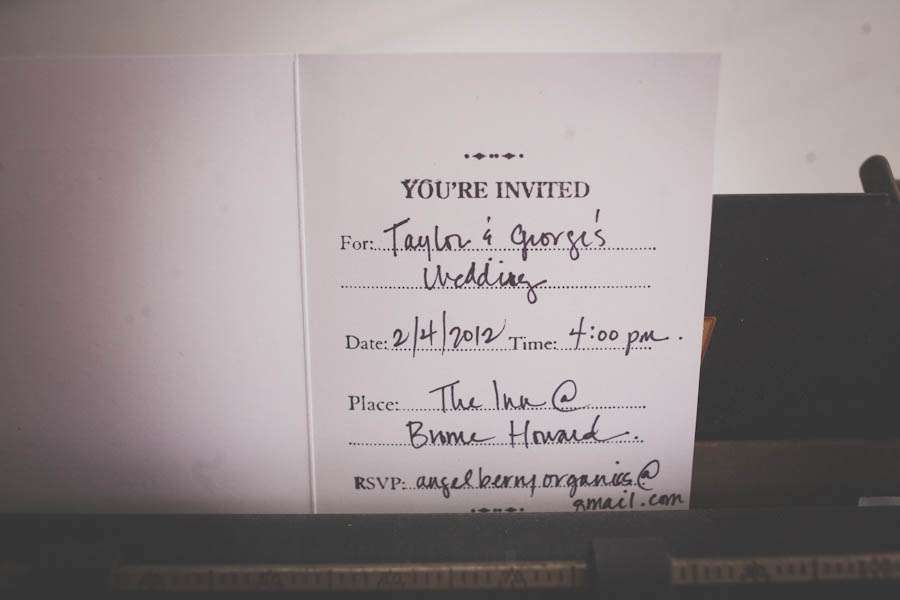 YOU'RE INVITED
For: Taylor & George's
Wedding
Date: 2/4/2012 Time: 4:00 pm.
Place: The Inn @
Brome Howard.
RSVP: angelberryorganics@
gmail.com